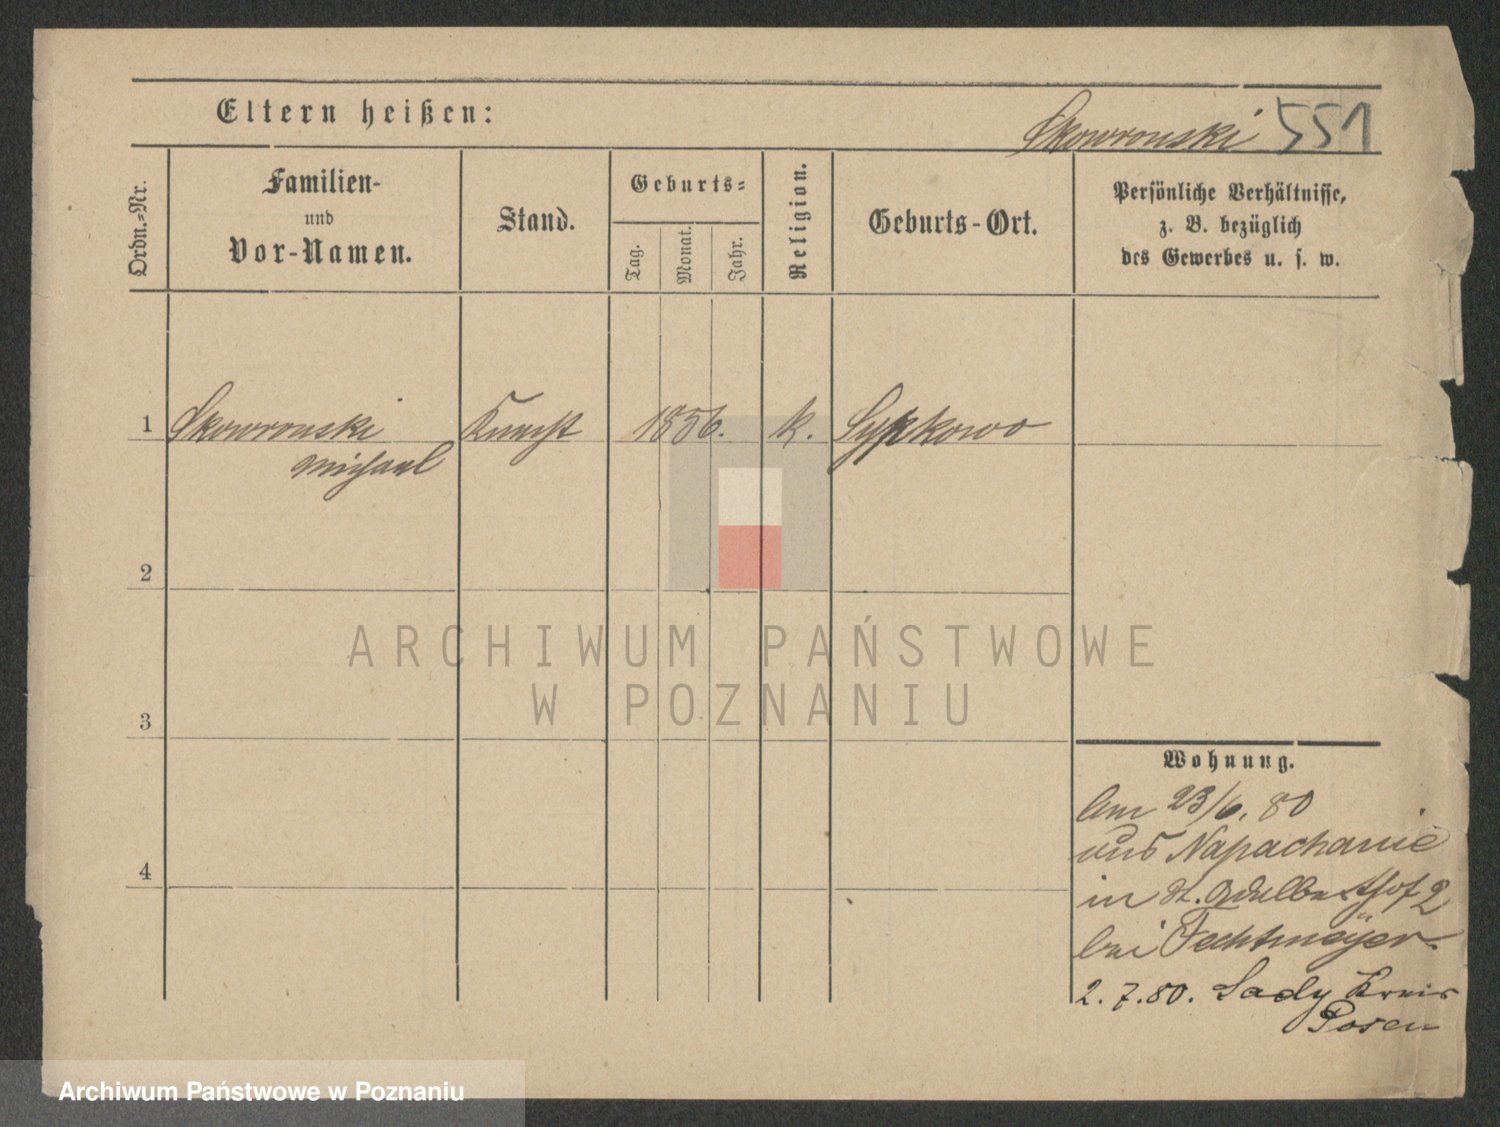 Eltern heißen:
Skowronski 551
Ordn.-Nr.
Familien-
und
Vor-Namen.
Stand.
Geburts-
Tag.
Monat.
Jahr.
Religion.
Geburts-Ort.
Persönliche Verhältnisse,
z. B. bezüglich
des Gewerbes u. s. w.
1 Skowronski Knecht 1856. k. Sypkowo
Michael
2
3
4
Wohnung.
Am 23/6. 80
aus Napachanie
in St. Adalbertshof 2
bei Fechtmeyer.
2. 7. 80. Sady Kreis
Posen
ARCHIWUM PAŃSTWOWE
W POZNANIU
Archiwum Państwowe w Poznaniu